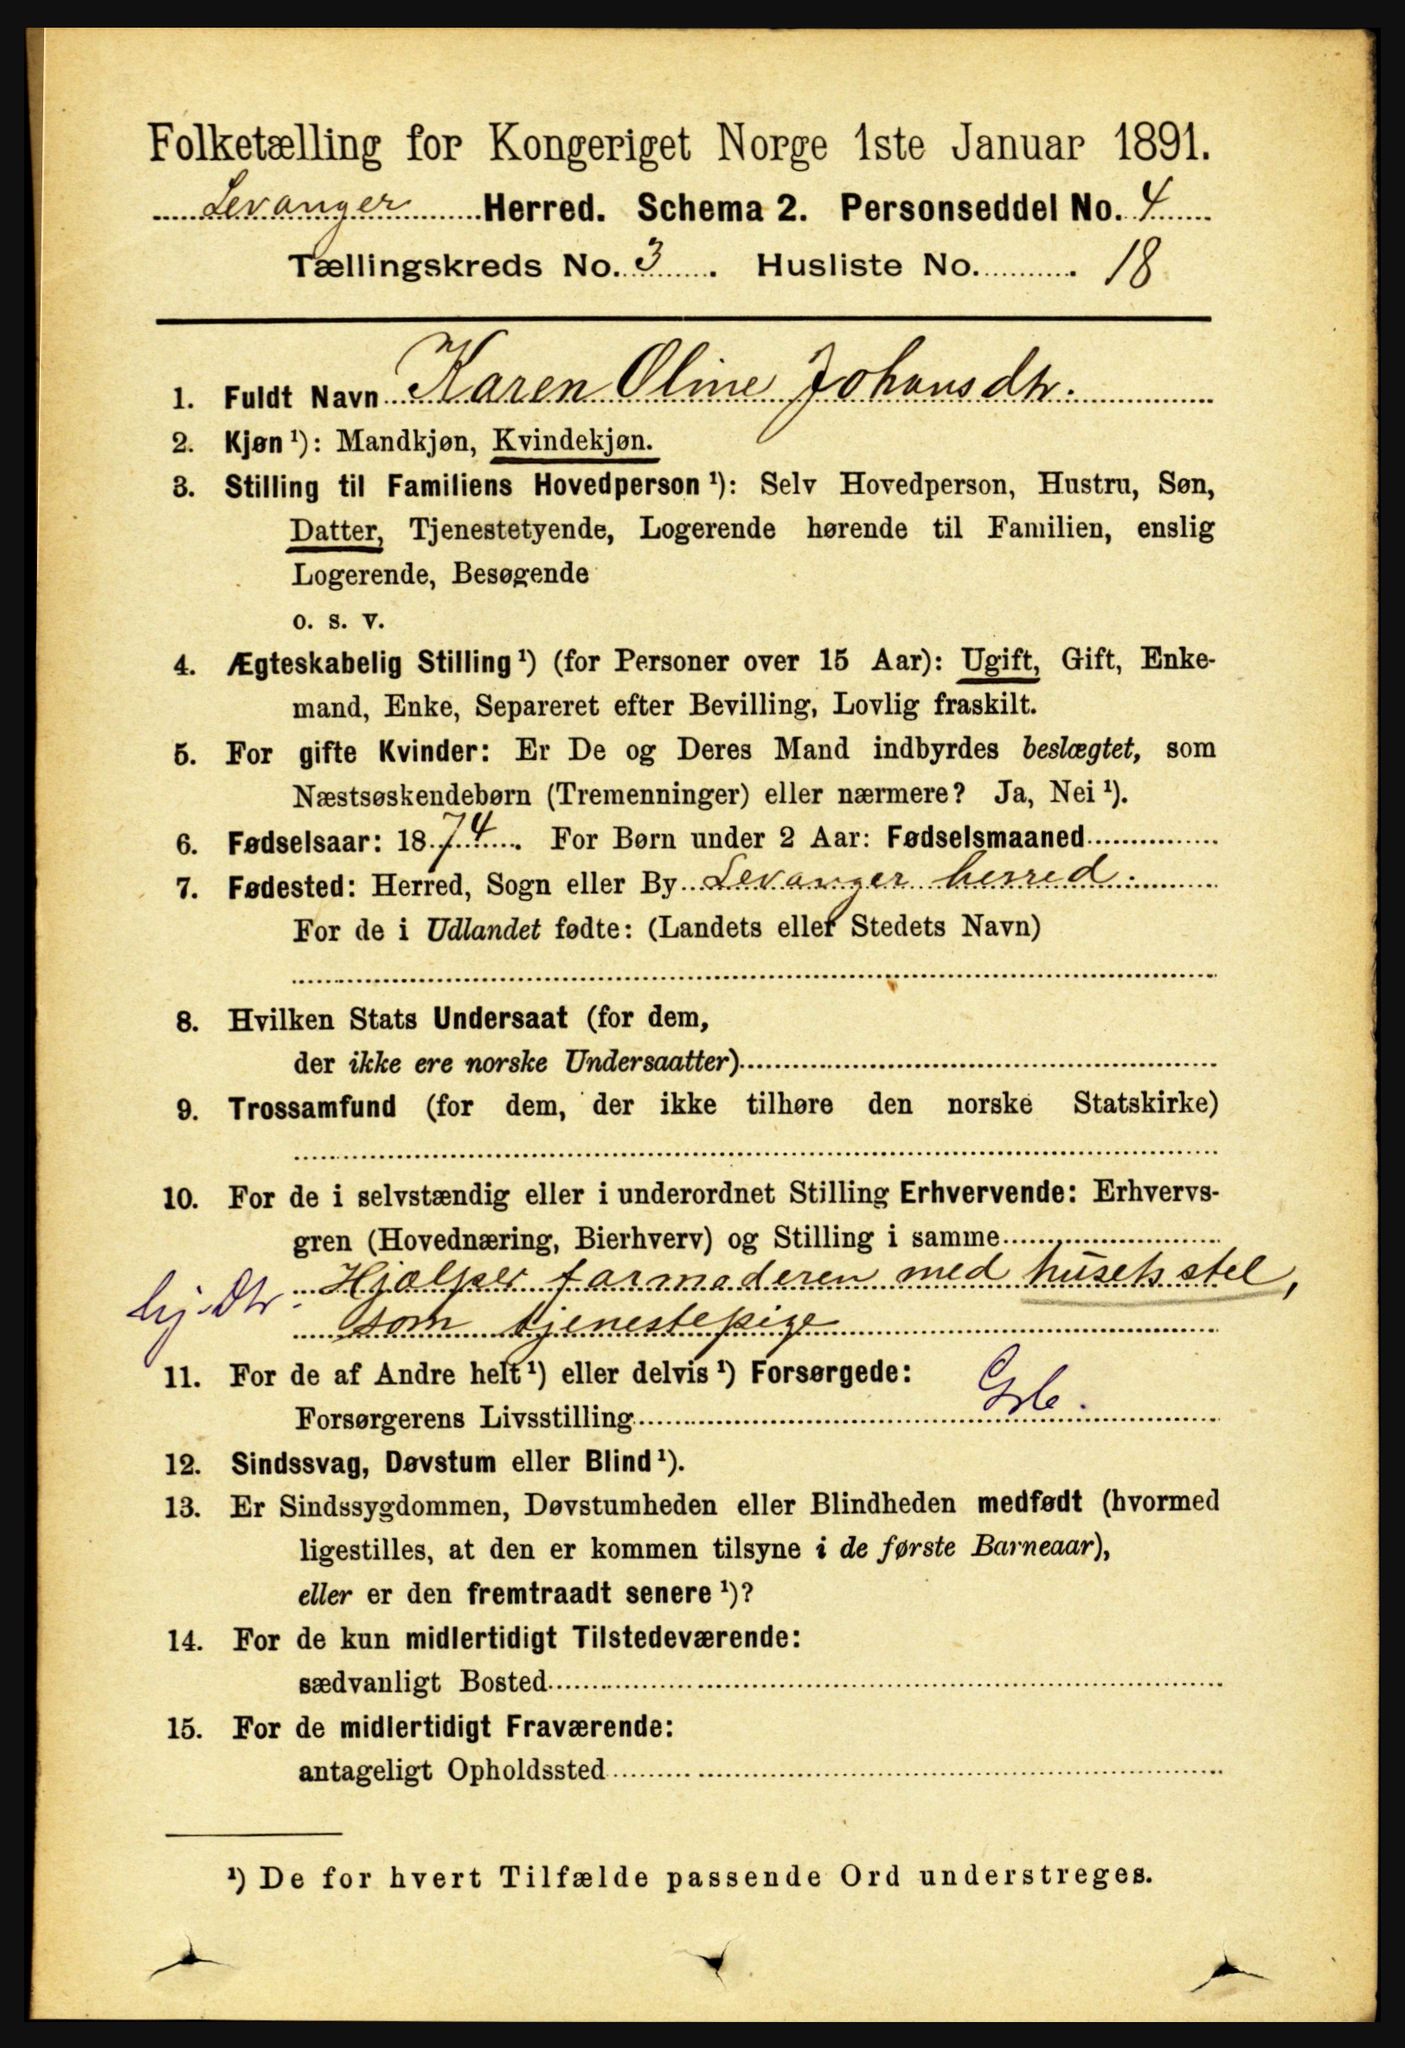 Folketælling for Kongeriget Norge 1ste Januar 1891.
Levanger Herred. Schema 2. Personseddel No. 4
Tællingskreds No. 3. Husliste No. 18
1. Fuldt Navn Karen Oline Johansdtr.
2. Kjøn ¹): Mandkjøn, Kvindekjøn.
3. Stilling til Familiens Hovedperson ¹): Selv Hovedperson, Hustru, Søn,
Datter, Tjenestetyende, Logerende hørende til Familien, enslig
Logerende, Besøgende
o. s. v.
4. Ægteskabelig Stilling ¹) (for Personer over 15 Aar): Ugift, Gift, Enke-
mand, Enke, Separeret efter Bevilling, Lovlig fraskilt.
5. For gifte Kvinder: Er De og Deres Mand indbyrdes beslægtet, som
Næstsøskendebørn (Tremenninger) eller nærmere? Ja, Nei ¹).
6. Fødselsaar: 1874. For Børn under 2 Aar: Fødselsmaaned
7. Fødested: Herred, Sogn eller By Levanger herred.
For de i Udlandet fødte: (Landets eller Stedets Navn)
8. Hvilken Stats Undersaat (for dem,
der ikke ere norske Undersaatter)
9. Trossamfund (for dem, der ikke tilhøre den norske Statskirke)
10. For de i selvstændig eller i underordnet Stilling Erhvervende: Erhvervs-
gren (Hovednæring, Bierhverv) og Stilling i samme
hj. Dtr. Hjælper farmoderen med husets stel,
som tjenestepige
11. For de af Andre helt ¹) eller delvis ¹) Forsørgede:
Forsørgerens Livsstilling
12. Sindssvag, Døvstum eller Blind ¹).
13. Er Sindssygdommen, Døvstumheden eller Blindheden medfødt (hvormed
ligestilles, at den er kommen tilsyne i de første Barneaar),
eller er den fremtraadt senere ¹)?
14. For de kun midlertidigt Tilstedeværende:
sædvanligt Bosted
15. For de midlertidigt Fraværende:
antageligt Opholdssted
¹) De for hvert Tilfælde passende Ord understreges.